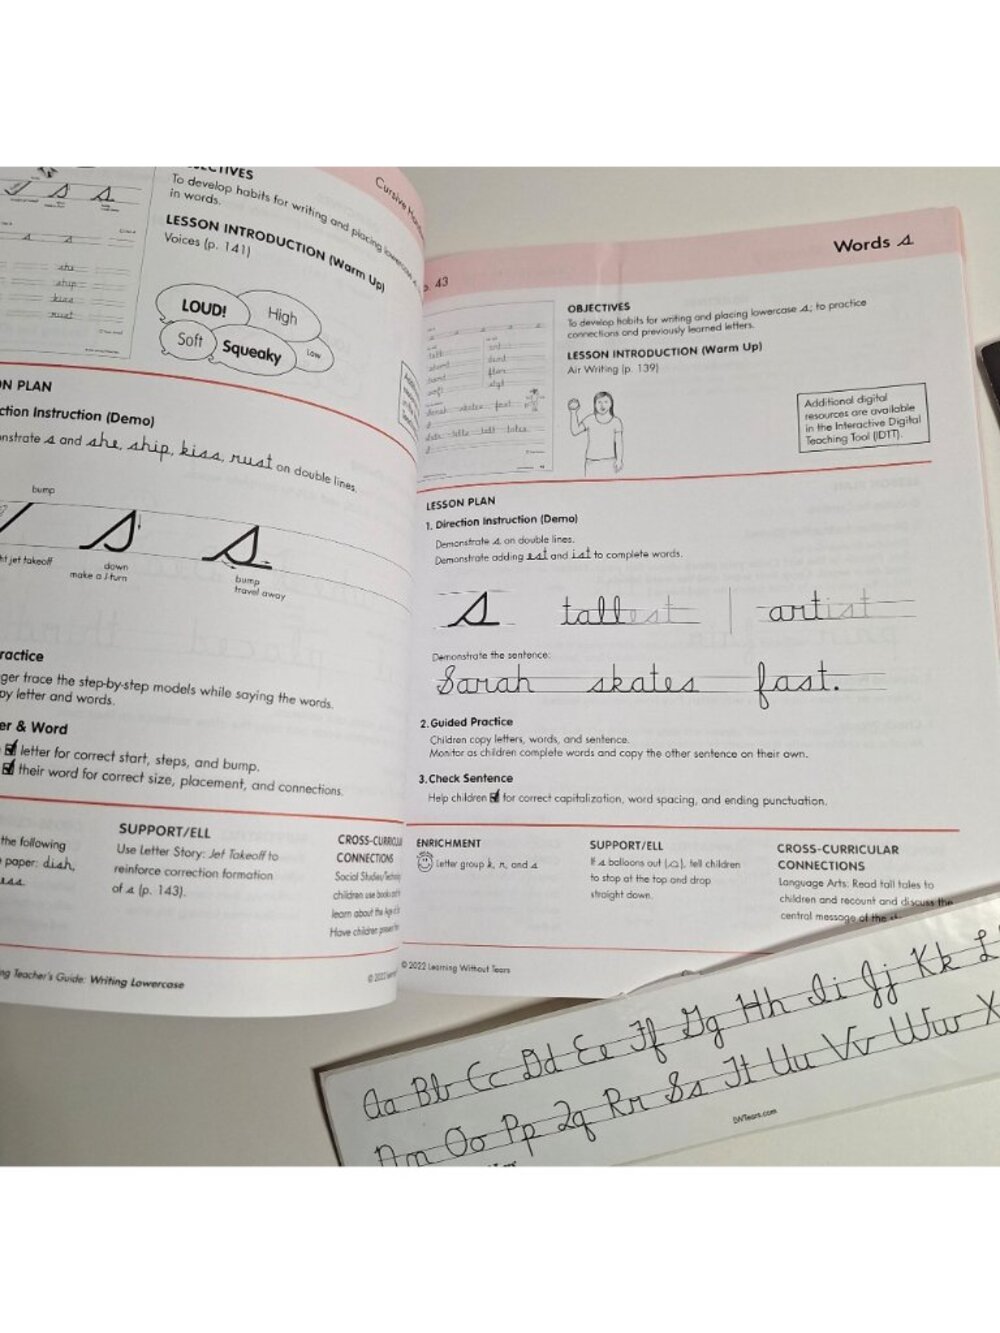 To develop habits for writing and placing lowercase
in words.
LESSON INTRODUCTION (Warm Up)
Voices (p. 141)
LOUD!
High
Soft
Squeaky
Low
she
ship
kiss
rust
PLAN
Instruction (Demo)
s and she, ship, kiss, rust on double lines.
bump
jet takeoff
down
make a J-turn
bump
travel away
s
s
trace the step-by-step models while saying the words.
letter and words.
& Word
letter for correct start, steps, and bump.
their word for correct size, placement, and connections.
the following
paper: dish,
SUPPORT/ELL
Use Letter Story: Jet Takeoff to
reinforce correction formation
of s (p. 143).
CONNECTIONS
Teacher's Guide: Writing Lowercase
© 2022
p. 43
Words s
OBJECTIVES
To develop habits for writing and placing lowercase s; to practice
connections and previously learned letters.
LESSON INTRODUCTION (Warm Up)
Air Writing (p. 139)
Additional digital
resources are available
in the Interactive Digital
Teaching Tool (IDTT).
LESSON PLAN
1. Direction Instruction (Demo)
Demonstrate s on double lines.
Demonstrate adding est and ist to complete words.
s tallest artist
Demonstrate the sentence:
Sarah skates fast.
2. Guided Practice
Children copy letters, words, and sentence.
Monitor as children complete words and copy the other sentence on their own.
3. Check Sentence
Help children for correct capitalization, word spacing, and ending punctuation.
ENRICHMENT
Letter group k, r, and s
SUPPORT/ELL
If s balloons out ( ), tell children
to stop at the top and drop
straight down.
CROSS-CURRICULAR
CONNECTIONS
Language Arts: Read tall tales to
children and recount and discuss the
central message of the
© 2022 Learning Without Tears
Aa Bb Cc Dd Ee Ff Gg Hh Ii Jj Kk L
Nn Oo Pp Qq Rr Ss Tt Uu Vv Ww X
LWTears.com